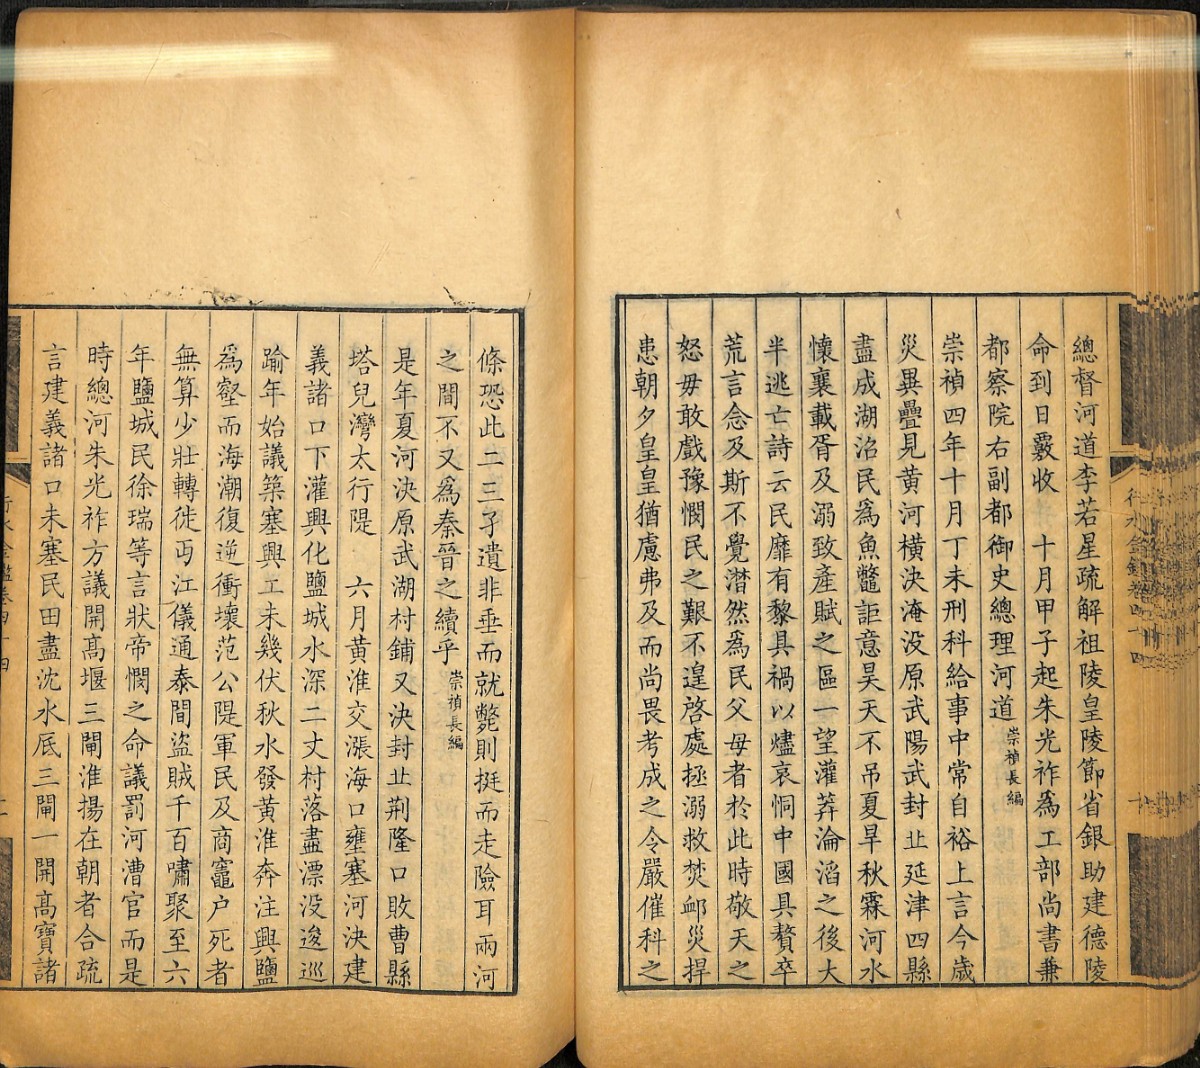 總督河道李若星疏解祖陵皇陵節省銀助建德陵
命到日覈收 十月甲子起朱光祚為工部尚書兼
都察院右副都御史總理河道崇禎長編
崇禎四年十月丁未刑科給事中常自裕上言今歲
災異疊見黄河橫決淹没原武陽武封丘延津四縣
盡成湖沼民為魚鼈詎意昊天不吊夏旱秋霖河水
懷襄載胥及溺致產賦之區一望灌莽淪滔之後大
半逃亡詩云民靡有黎具禍以燼哀恫中國具贅卒
荒言念及斯不覺潸然為民父母者於此時敬天之
怒毋敢戲豫憫民之艱不遑啓處拯溺救焚䘏災捍
患朝夕皇皇猶慮弗及而尚畏考成之令嚴催科之
條恐此二三孑遺非垂而就斃則挺而走險耳兩河
之間不又為秦晉之續乎崇禎長編
是年夏河決原武湖村鋪又決封丘荆隆口敗曹縣
塔兒灣太行隄 六月黄淮交漲海口壅塞河決建
義諸口下灌興化鹽城水深二丈村落盡漂没逡巡
踰年始議築塞興工未幾伏秋水發黄淮奔注興鹽
為壑而海潮復逆衝壞范公隄軍民及商竈户死者
無算少壯轉徙丐江儀通泰間盜賊千百嘯聚至六
年鹽城民徐瑞等言狀帝憫之命議罰河漕官而是
時總河朱光祚方議開高堰三閘淮揚在朝者合疏
言建義諸口未塞民田盡沈水底三閘一開高寶諸
行水金鑑卷四十四